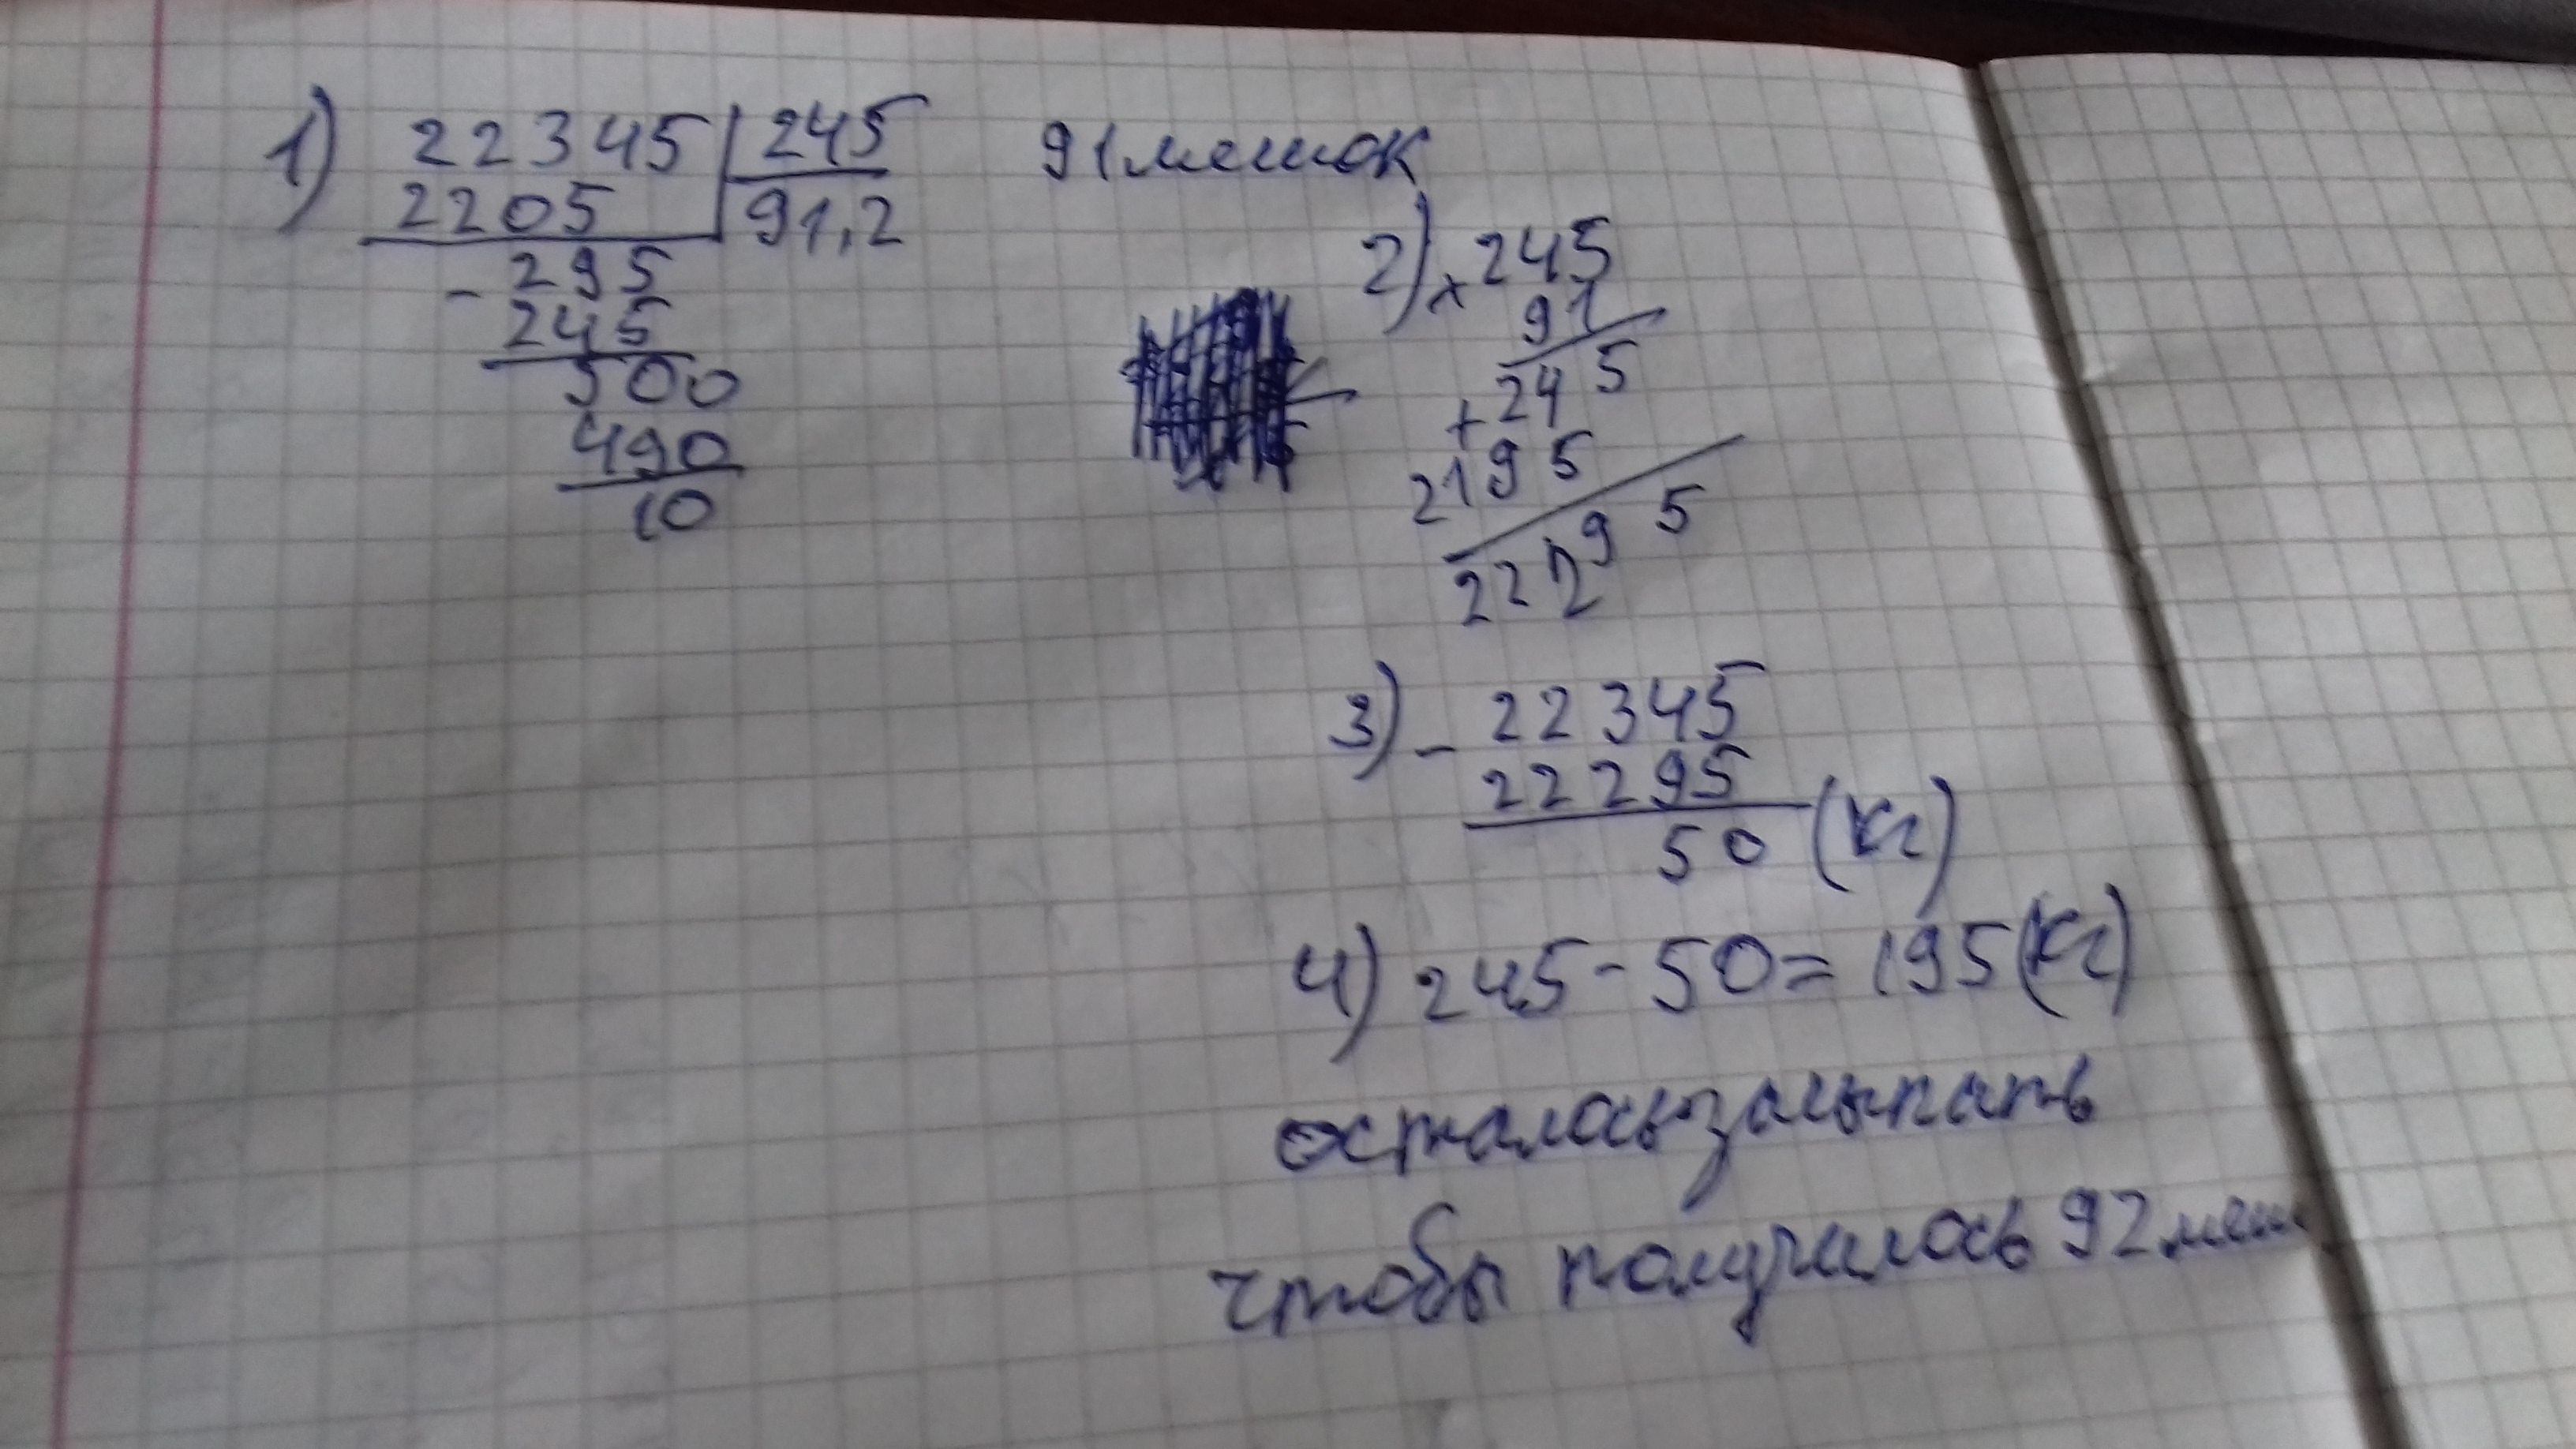 1) 22345 | 245
2205 | 91,2
- 295
245
500
490
10
91 мешок
2) × 245
91
+ 245
2195
22295
3) - 22345
22295
50 (кг)
4) 245 - 50 = 195 (кг)
осталось засыпать
чтобы получилось 92 меш